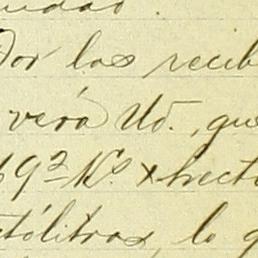 Por las recib
verá Ud., que
69² K.ˢ x hecto
tólitros, lo q